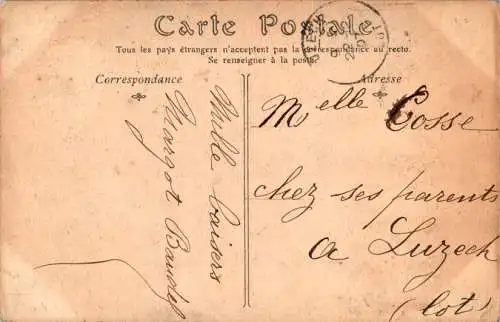 Carte Postale
Tous les pays étrangers n'acceptent pas la correspondance au recto.
Se renseigner à la poste.
Correspondance
Adresse
Mille baisers
Margot
Melle Cosse
chez ses parents
a Luzech
(Lot)